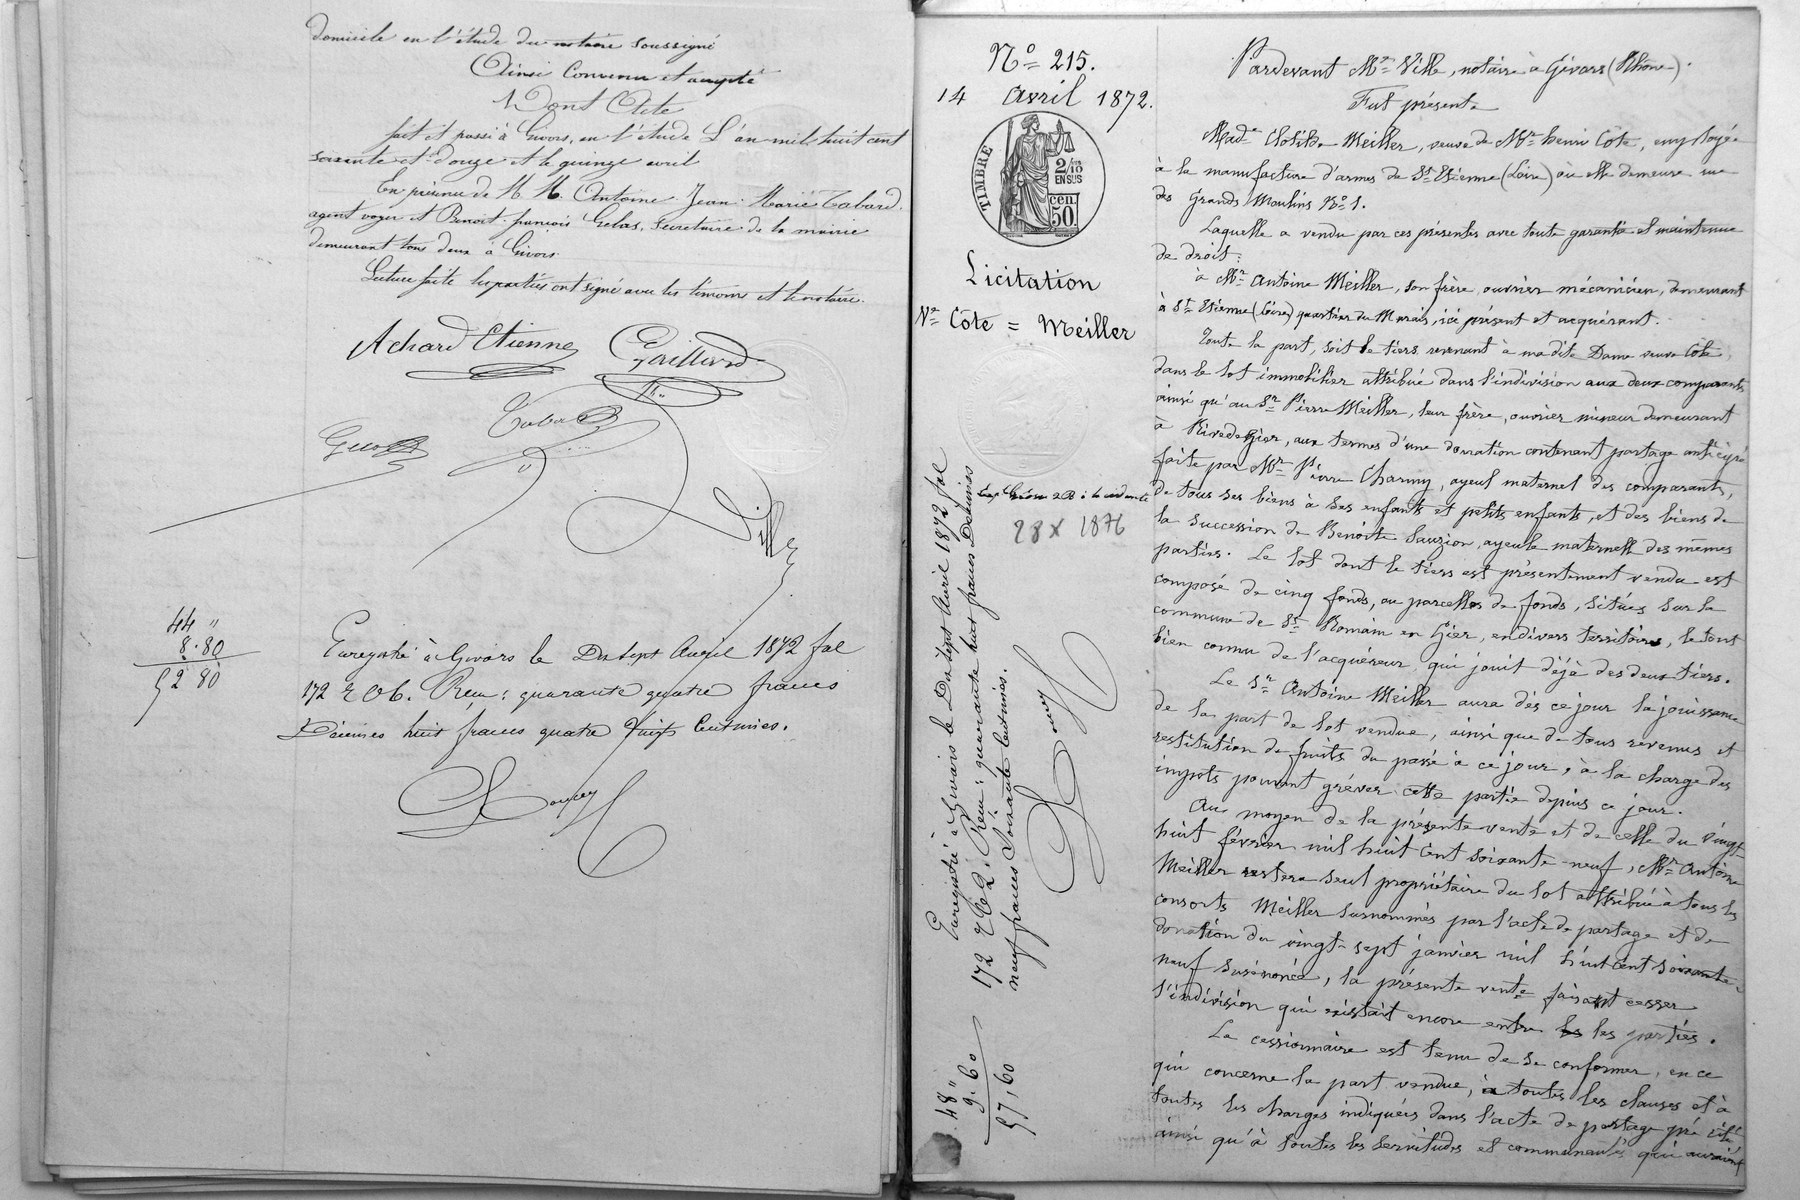 domicile en l'étude du notaire soussigné
Ainsi Convenu et accepté
Dont Acte
fait et passé à Givors, en l'étude L'an mil huit cent
soixante et douze et le quinze avril
En présence de M. M. Antoine Jean Marie Tabard,
agent voyer et Benoit françois Gelas, Secretaire de la mairie
demeurant tous deux à Givors
Lecture faite les parties ont signé avec les témoins et le notaire.
Achard Etienne Gaillard
Tabard
Gelas
Ville
44 "
8.80
52 80
Enregistré à Givors le Dix sept Avril 1872 fol
172 R C 6. Reçu: quarante quatre francs
Décimes huit francs quatre vingts Centimes.
N° 215.
14 Avril 1872.
TIMBRE
2/10
EN SUS
50 cen.
Licitation
Ve Côte = Meiller
28 X 1876
Enregistré à Givors le Dix sept Avril 1872 fol
172 R C 2. Reçu: quarante huit francs Décimes
neuf francs Soixante Centimes.
48 "
9.60
57,60
Pardevant Me Ville, notaire à Givors (Rhône).
Fut présente
Made Clotilde Meiller, veuve de Mr henri Côte, employée
à la manufacture d'armes de St Etienne (Loire) où elle demeure rue
des Grands Moulins No 1.
Laquelle a vendu par ces présentes avec toute garantie et maintenue
de droit:
à Mr Antoine Meiller, son frère, ouvrier mécanicien, demeurant
à St Etienne (Loire) quartier du Marais, ici présent et acquérant.
Toute la part, soit le tiers revenant à ma dite Dame veuve Côte,
dans le lot immobilier attribué dans l'indivision aux deux comparants
ainsi qu'au Sr Pierre Meiller, leur frère, ouvrier mineur demeurant
à Rivedegier, aux termes d'une donation contenant partage anticipé
faite par Mr Pierre Charmy, ayeul maternel des comparants,
de tous ses biens à ses enfants et petits enfants, et des biens de
la succession de Benoite Sauzion, ayeule maternelle des mêmes
parties. Le lot dont le tiers est présentement vendu est
composé de cinq fonds, ou parcelles de fonds, situés sur la
commune de St Romain en Gier, en divers territoires, le tout
bien connu de l'acquéreur, qui jouit déjà des deux tiers.
Le Sr Antoine Meiller aura dès ce jour la jouissance
de la part de lot vendue, ainsi que de tous revenus et
restitution de fruits du passé à ce jour, à la charge des
impots pouvant gréver cette partie depuis ce jour.
Au moyen de la présente vente et de celle du vingt
huit février mil huit cent soixante neuf, Mr Antoine
Meiller restera seul propriétaire du lot attribué à tous les
consorts Meiller susnommés par l'acte de partage et de
donation du vingt-sept janvier mil huit cent soixante
neuf susénoncé, la présente vente faisant cesser
l'indivision qui existait encore entre les parties.
Le cessionnaire est tenu de se conformer, en ce
qui concerne la part vendue, à toutes les clauses et à
toutes les charges indiquées dans l'acte de partage pré cité
ainsi qu'à toutes les servitudes et communautés qui auraient